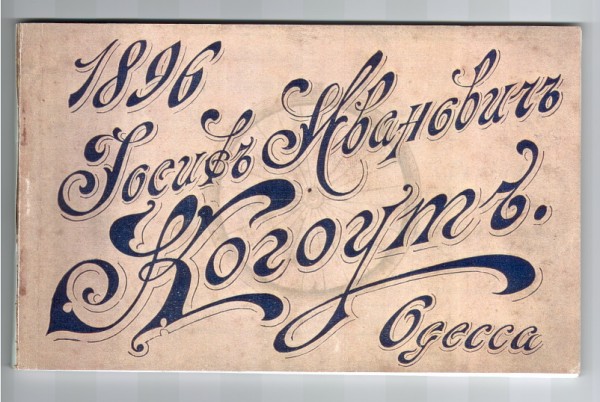 1896
Іосифъ Ивановичъ
Когоутъ.
Одесса